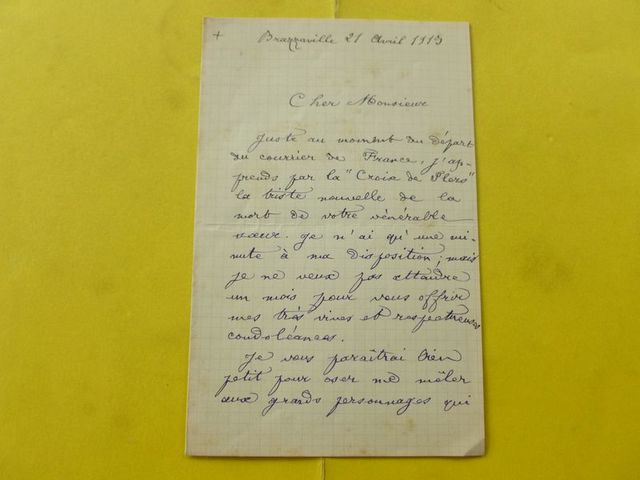 + Brazzaville 21 Avril 1913
Cher Monsieur
Juste au moment du départ
du courrier de France, j'ap-
prends par la "Croix de Flers"
la triste nouvelle de la
mort de votre vénérable
sœur. Je n'ai qu'une mi-
nute à ma disposition ; mais
je ne veux pas attendre
un mois pour vous offrir
mes très vives et respectueuses
condoléances.
Je vous paraîtrai bien
petit pour oser me mêler
aux grands personnages qui